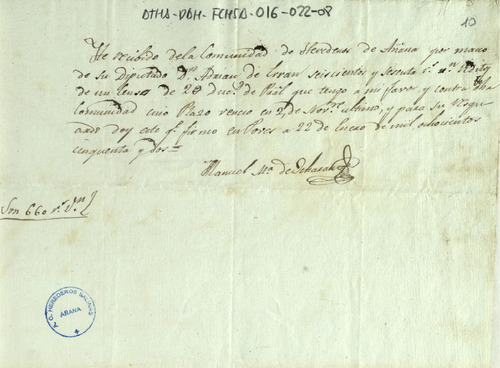 ATHA-DAH-FCHSA-016-022-08
10
He recibido de la Comunidad de Herederos de Añana por mano
de su Diputado Dn. Adrian de Erran Seiscientos y Sesenta rs. vn. Reditos
de un Censo de 20 duc. de Prâl que tengo a mi favor y contra dha
Comunidad cuio Plazo vencio en 2, de Nove. ultimo, y para su Resgu
ardo doy este qe. firmo en Poves a 22 de Enero de mil ochocientos
cinquenta y dos=
Manuel Ma. de
Son 660 rs. Vn.
A. C. HEREDEROS SALINAS
AÑANA